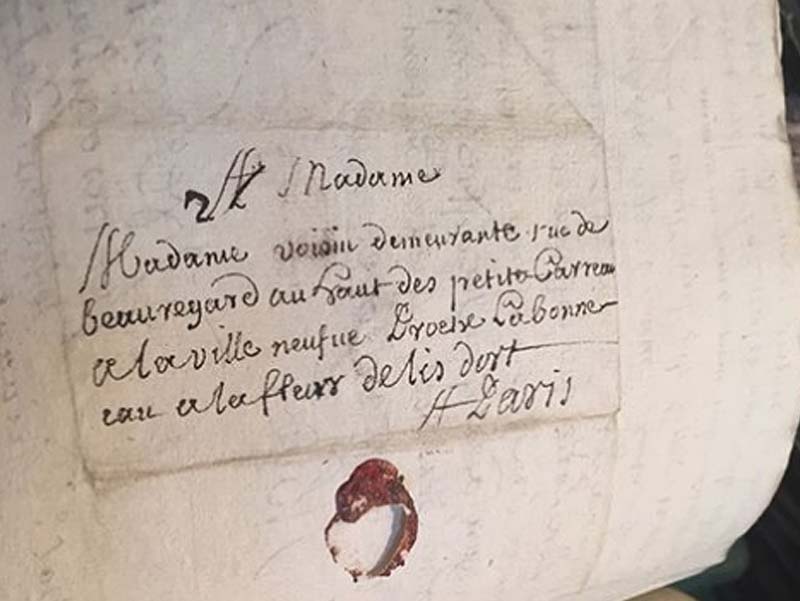 A Madame
Madame voisin demeurante rue de
beauregard au haut des petits Carreau
a la ville neufue Proche Labonne
eau a la fleur de lis dort
A Paris